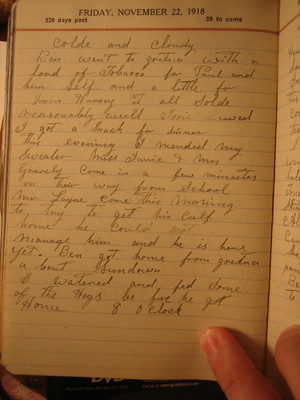 FRIDAY, NOVEMBER 22, 1918
326 days past 39 to come
Colde and Cloudy
Ben went to gordner with a
load of Tobacco for Paul and
him Self and a little for
Harvey it all Solde
reasonably well
I got a Snack for dinner
This evening I mended my
Sweater Miss Janie & Mrs
Gravely Come in a few minutes
on their way from School
Mr Layne Come this Morning
to try to get his Calf
home he Could not
Manage him and he is here
yet. Ben got home from gordner
a bout Sundown
I and fed Some
of the Hogs be fore he got
Home 8 O Clock
DVD